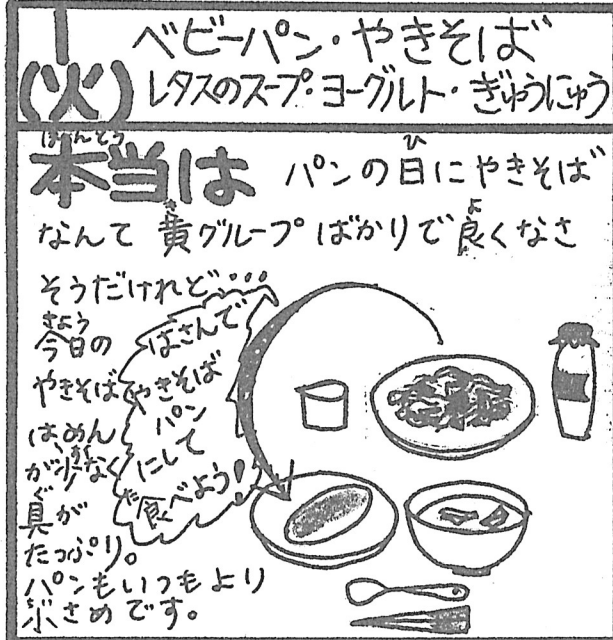 1
(火)
ベビーパン・やきそば
レタスのスープ・ヨーグルト・ぎゅうにゅう
ほんとう
本当は パンの日にやきそば
ひ
なんて 黄グループばかりで良くなさ
き
よ
そうだけれど…
きょう
今日の
やきそば
はめん
が少なく
すく
具が
ぐ
たっぷり。
パンもいつもより
小さめです。
はさんで
やきそば
パン
にして
食べよう!
た